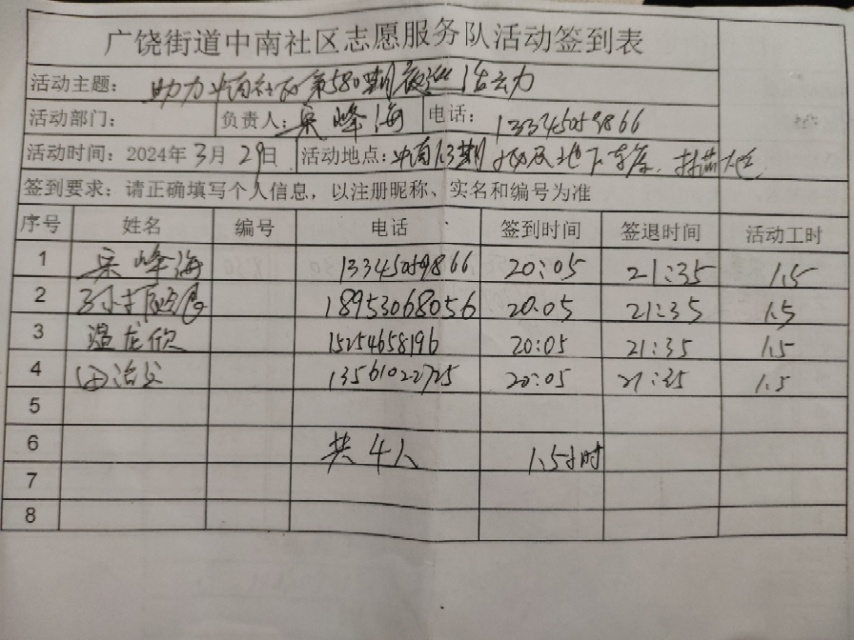 广饶街道中南社区志愿服务队活动签到表
活动主题: 助力中南社区第580期夜巡
活动部门: 负责人: 宋峰海 电话: 13345059866
活动时间: 2024年3月29日 活动地点: 中南1.3期 及地下车库、
签到要求: 请正确填写个人信息,以注册昵称、实名和编号为准
序号 姓名 编号 电话 签到时间 签退时间 活动工时
1 宋峰海 13345059866 20:05 21:35 1.5
2 18953068056 20:05 21:35 1.5
3 温龙欣 15254658196 20:05 21:35 1.5
4 13561022725 20:05 21:35 1.5
5
6 共4人 1.5小时
7
8